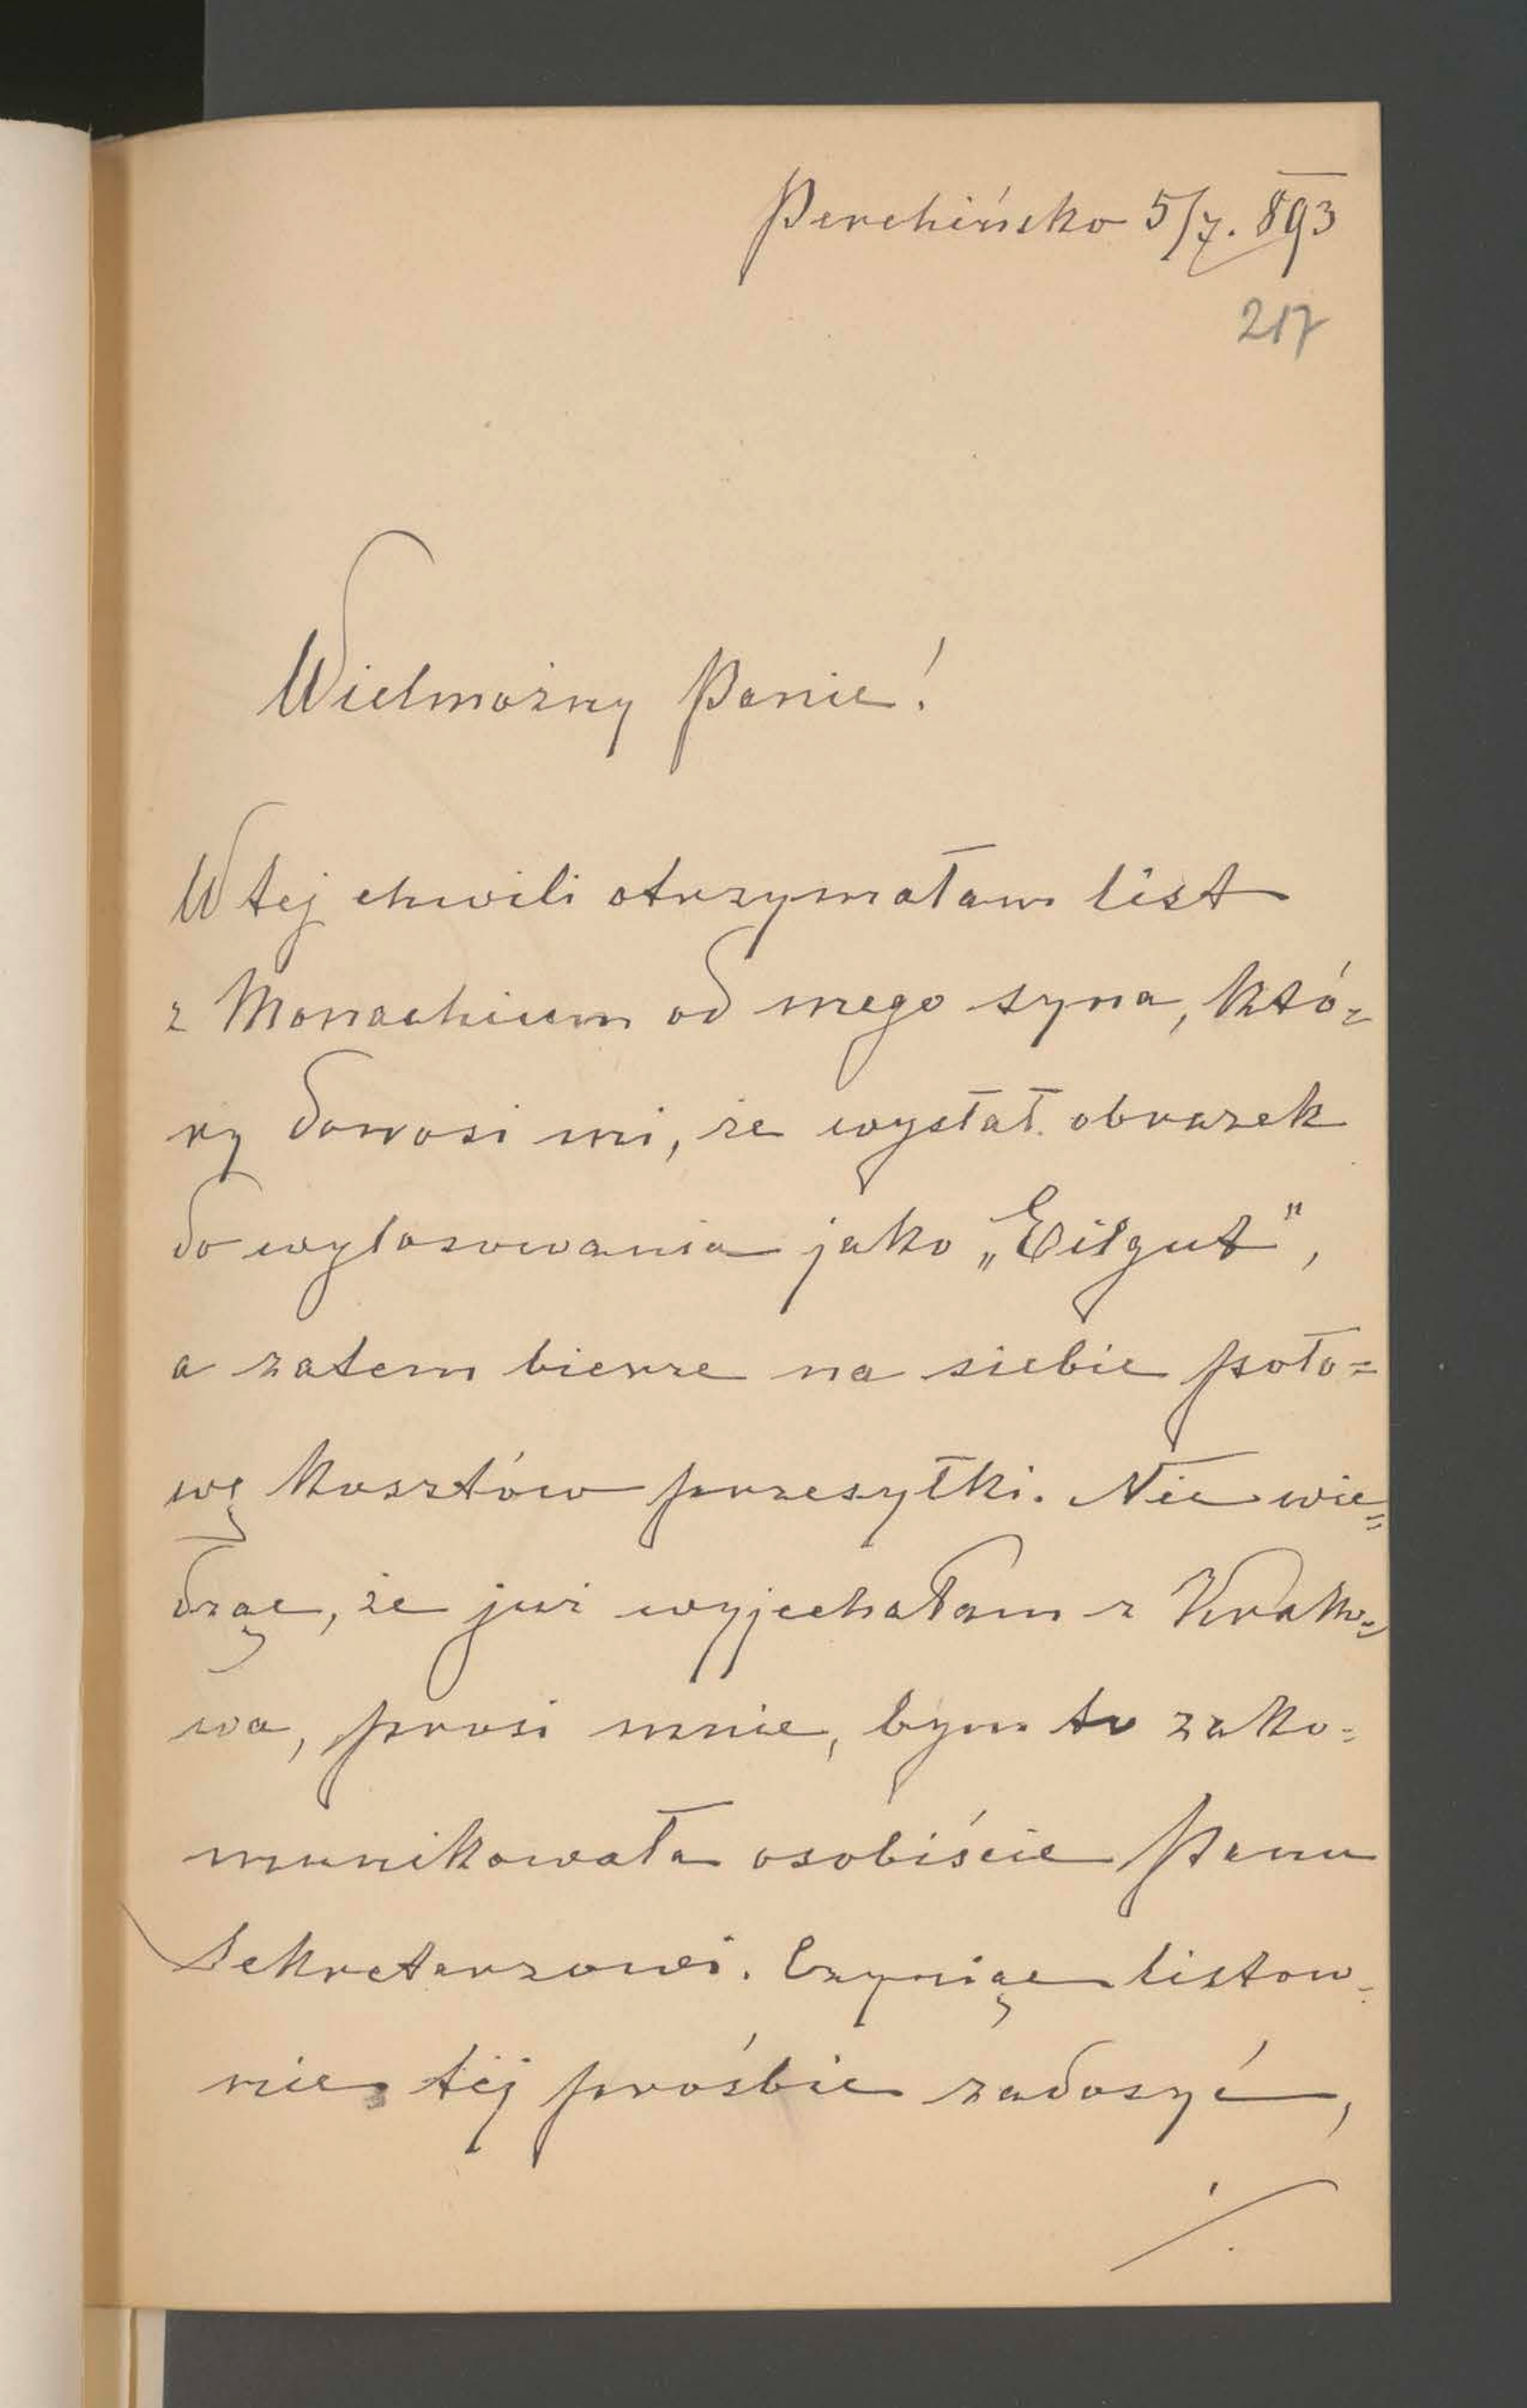 Perehińsko 5/7. 893
217
Wielmożny Panie!
W tej chwili otrzymałam list
z Monachium od mego syna, któ-
ry donosi mi, że wysłał obrazek
do wylosowania jako „Eilgut",
a zatem bierze na siebie poło=
wę kosztów przesyłki. Nie wie=
dząc, że już wyjechałam z Krako=
wa, prosi mnie, bym to zako=
munikowała osobiście Panu
Sekretarzowi. Czyniąc listow-
nie tej prośbie zadosyć,
./.